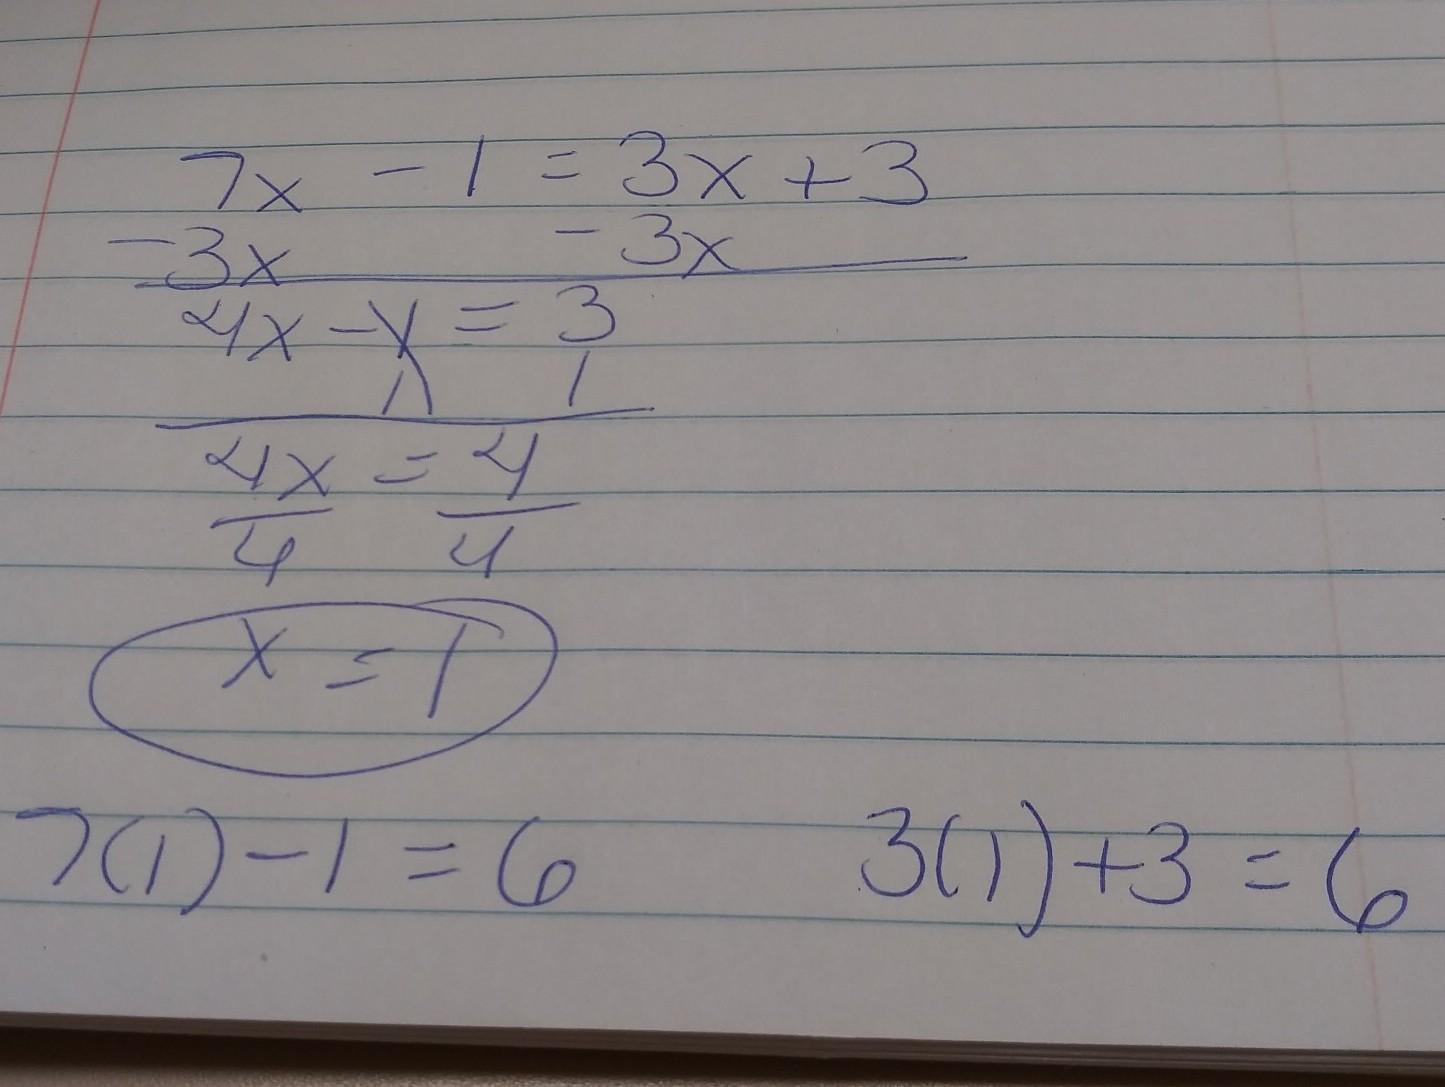 7x - 1 = 3x + 3
-3x - 3x
4x - 1 = 3
1 1
4x = 4
4 4
x = 1
7(1) - 1 = 6 3(1) + 3 = 6